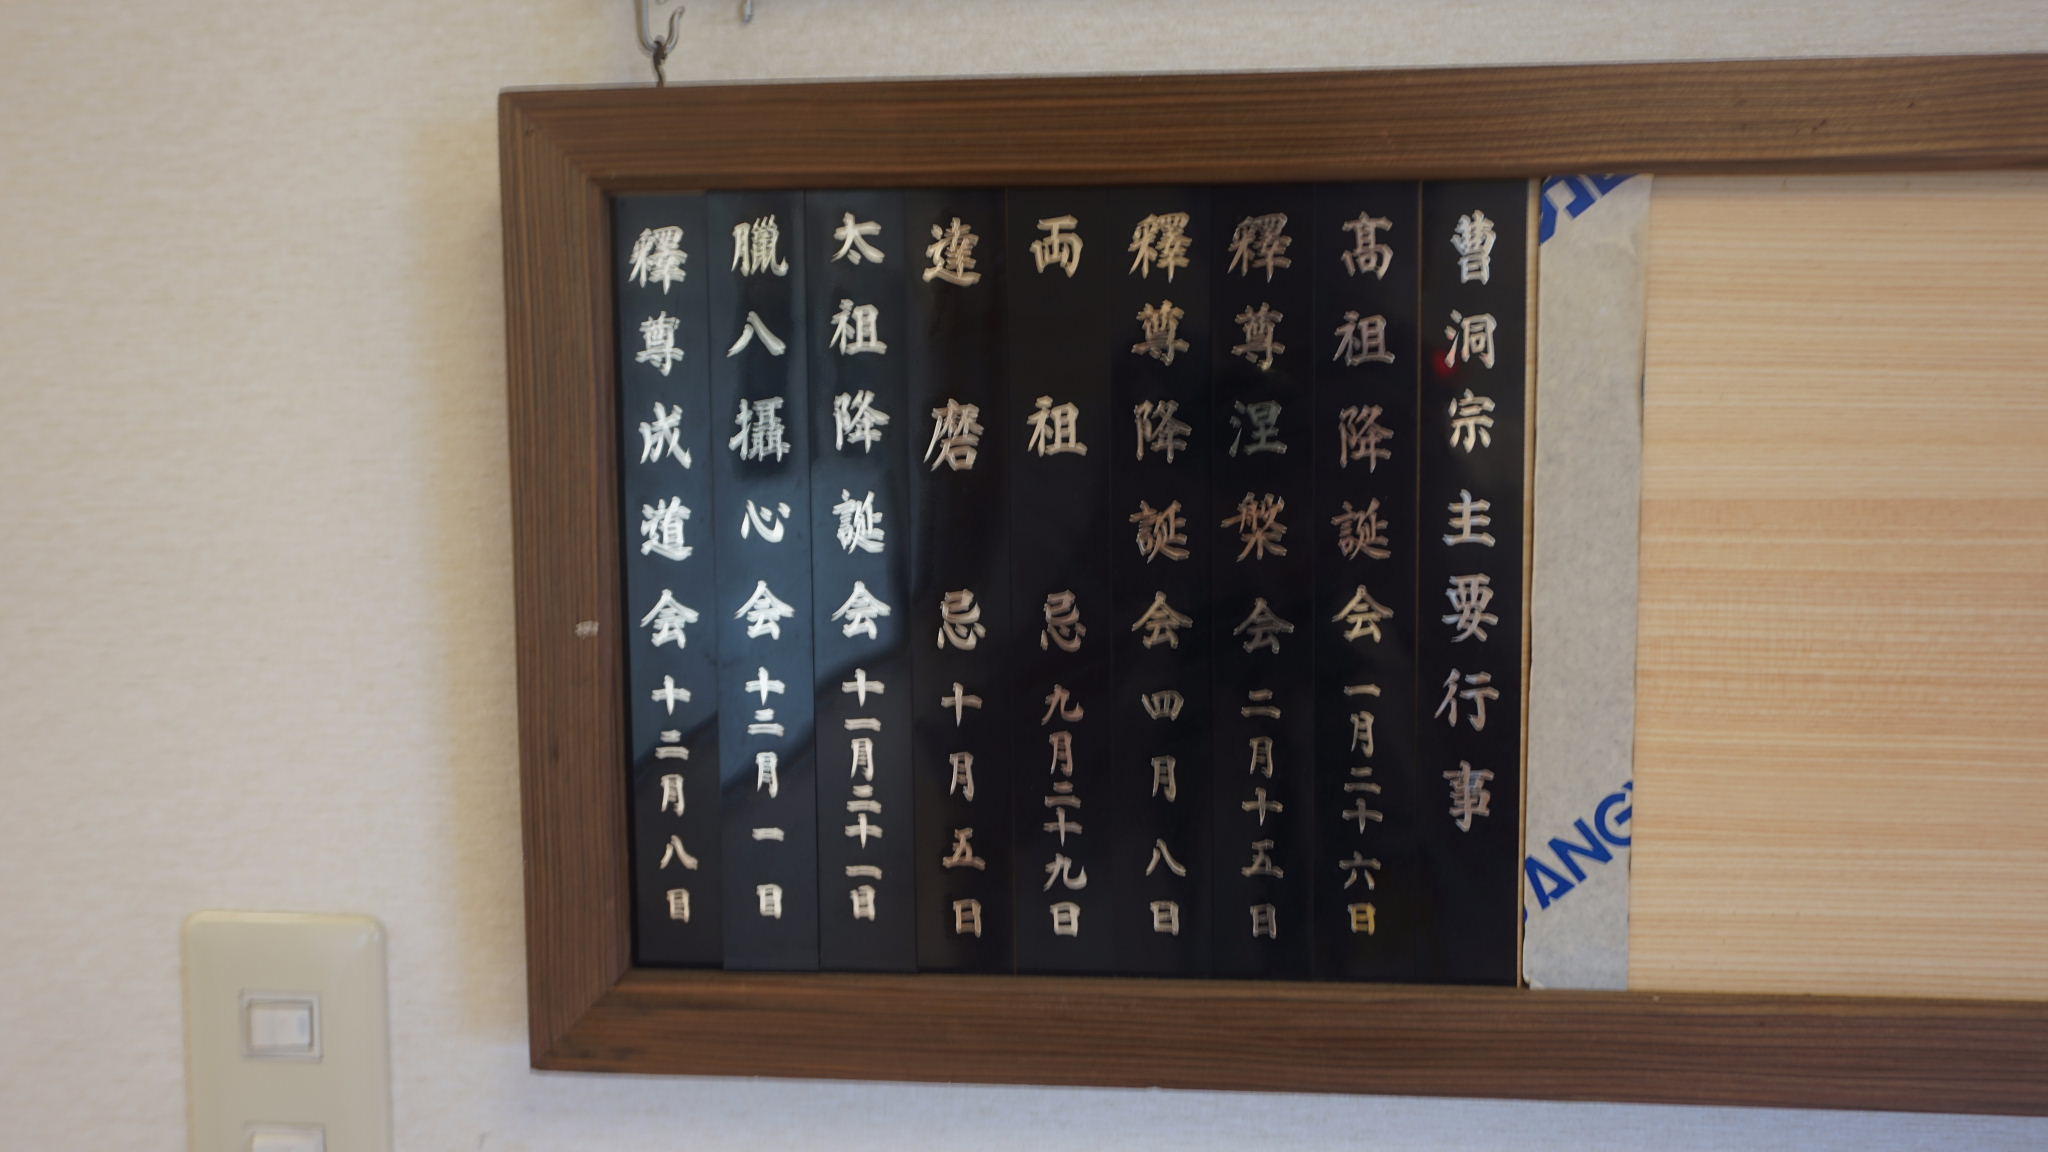 曹洞宗主要行事
髙祖降誕会 一月二十六日
釋尊涅槃会 二月十五日
釋尊降誕会 四月八日
両祖忌 九月二十九日
達磨忌 十月五日
太祖降誕会 十一月二十一日
臘八攝心会 十二月一日
釋尊成道会 十二月八日